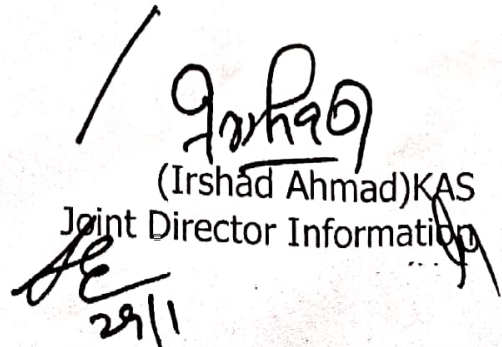 Irshad
(Irshad Ahmad)KAS
Joint Director Information
29/1